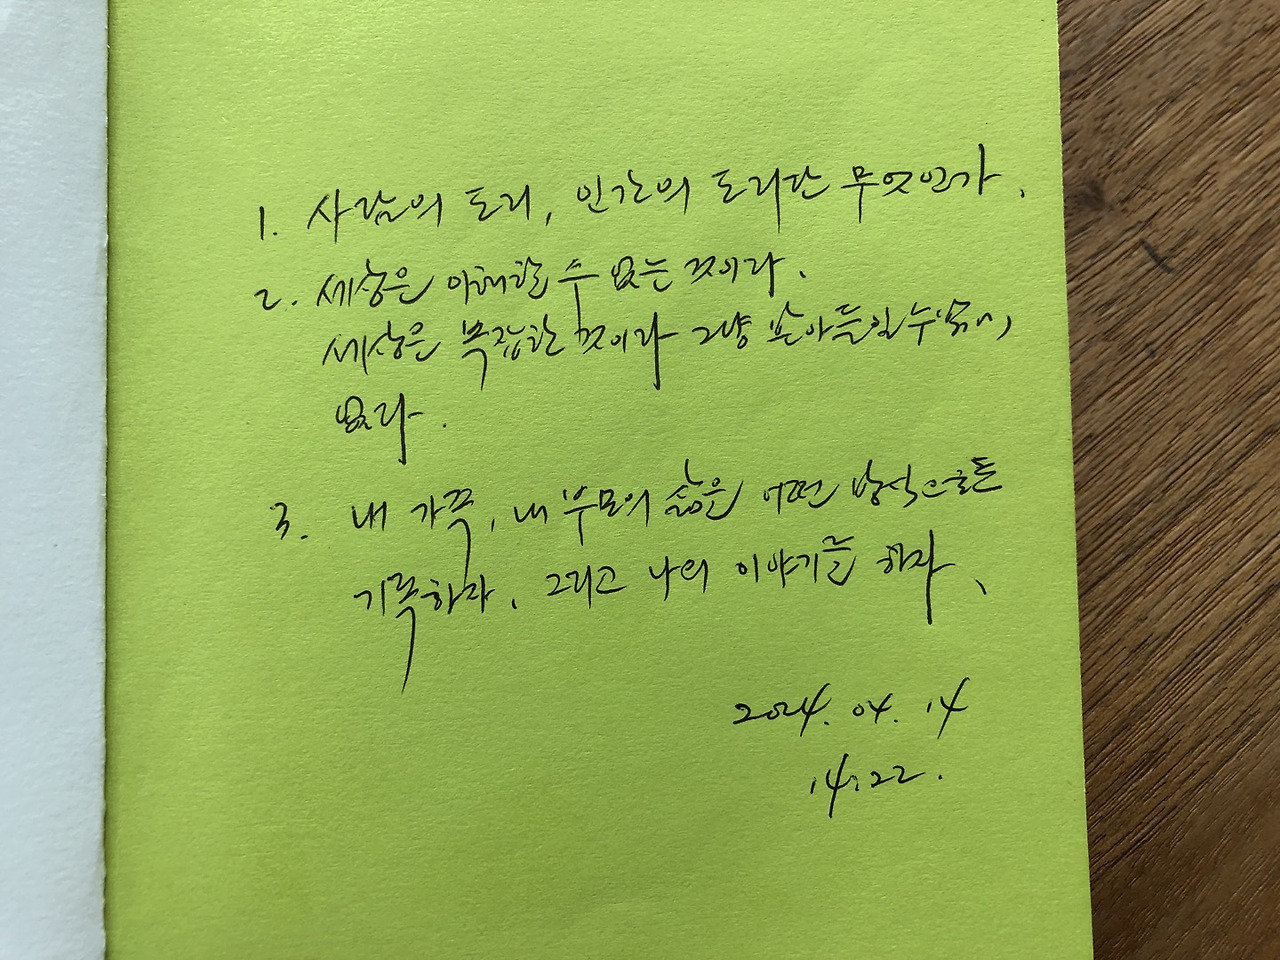 1. 사람의 도리, 인간의 도리란 무엇인가.
2. 세상은 이해할 수 없는 것이다.
세상은 복잡한 것이다 그냥 받아들일 수밖에
없다.
3. 내 가족, 내 부모의 삶은 어떤 방식으로든
기록하자. 그리고 나의 이야기를 하자.
2024. 04. 14
14:22.